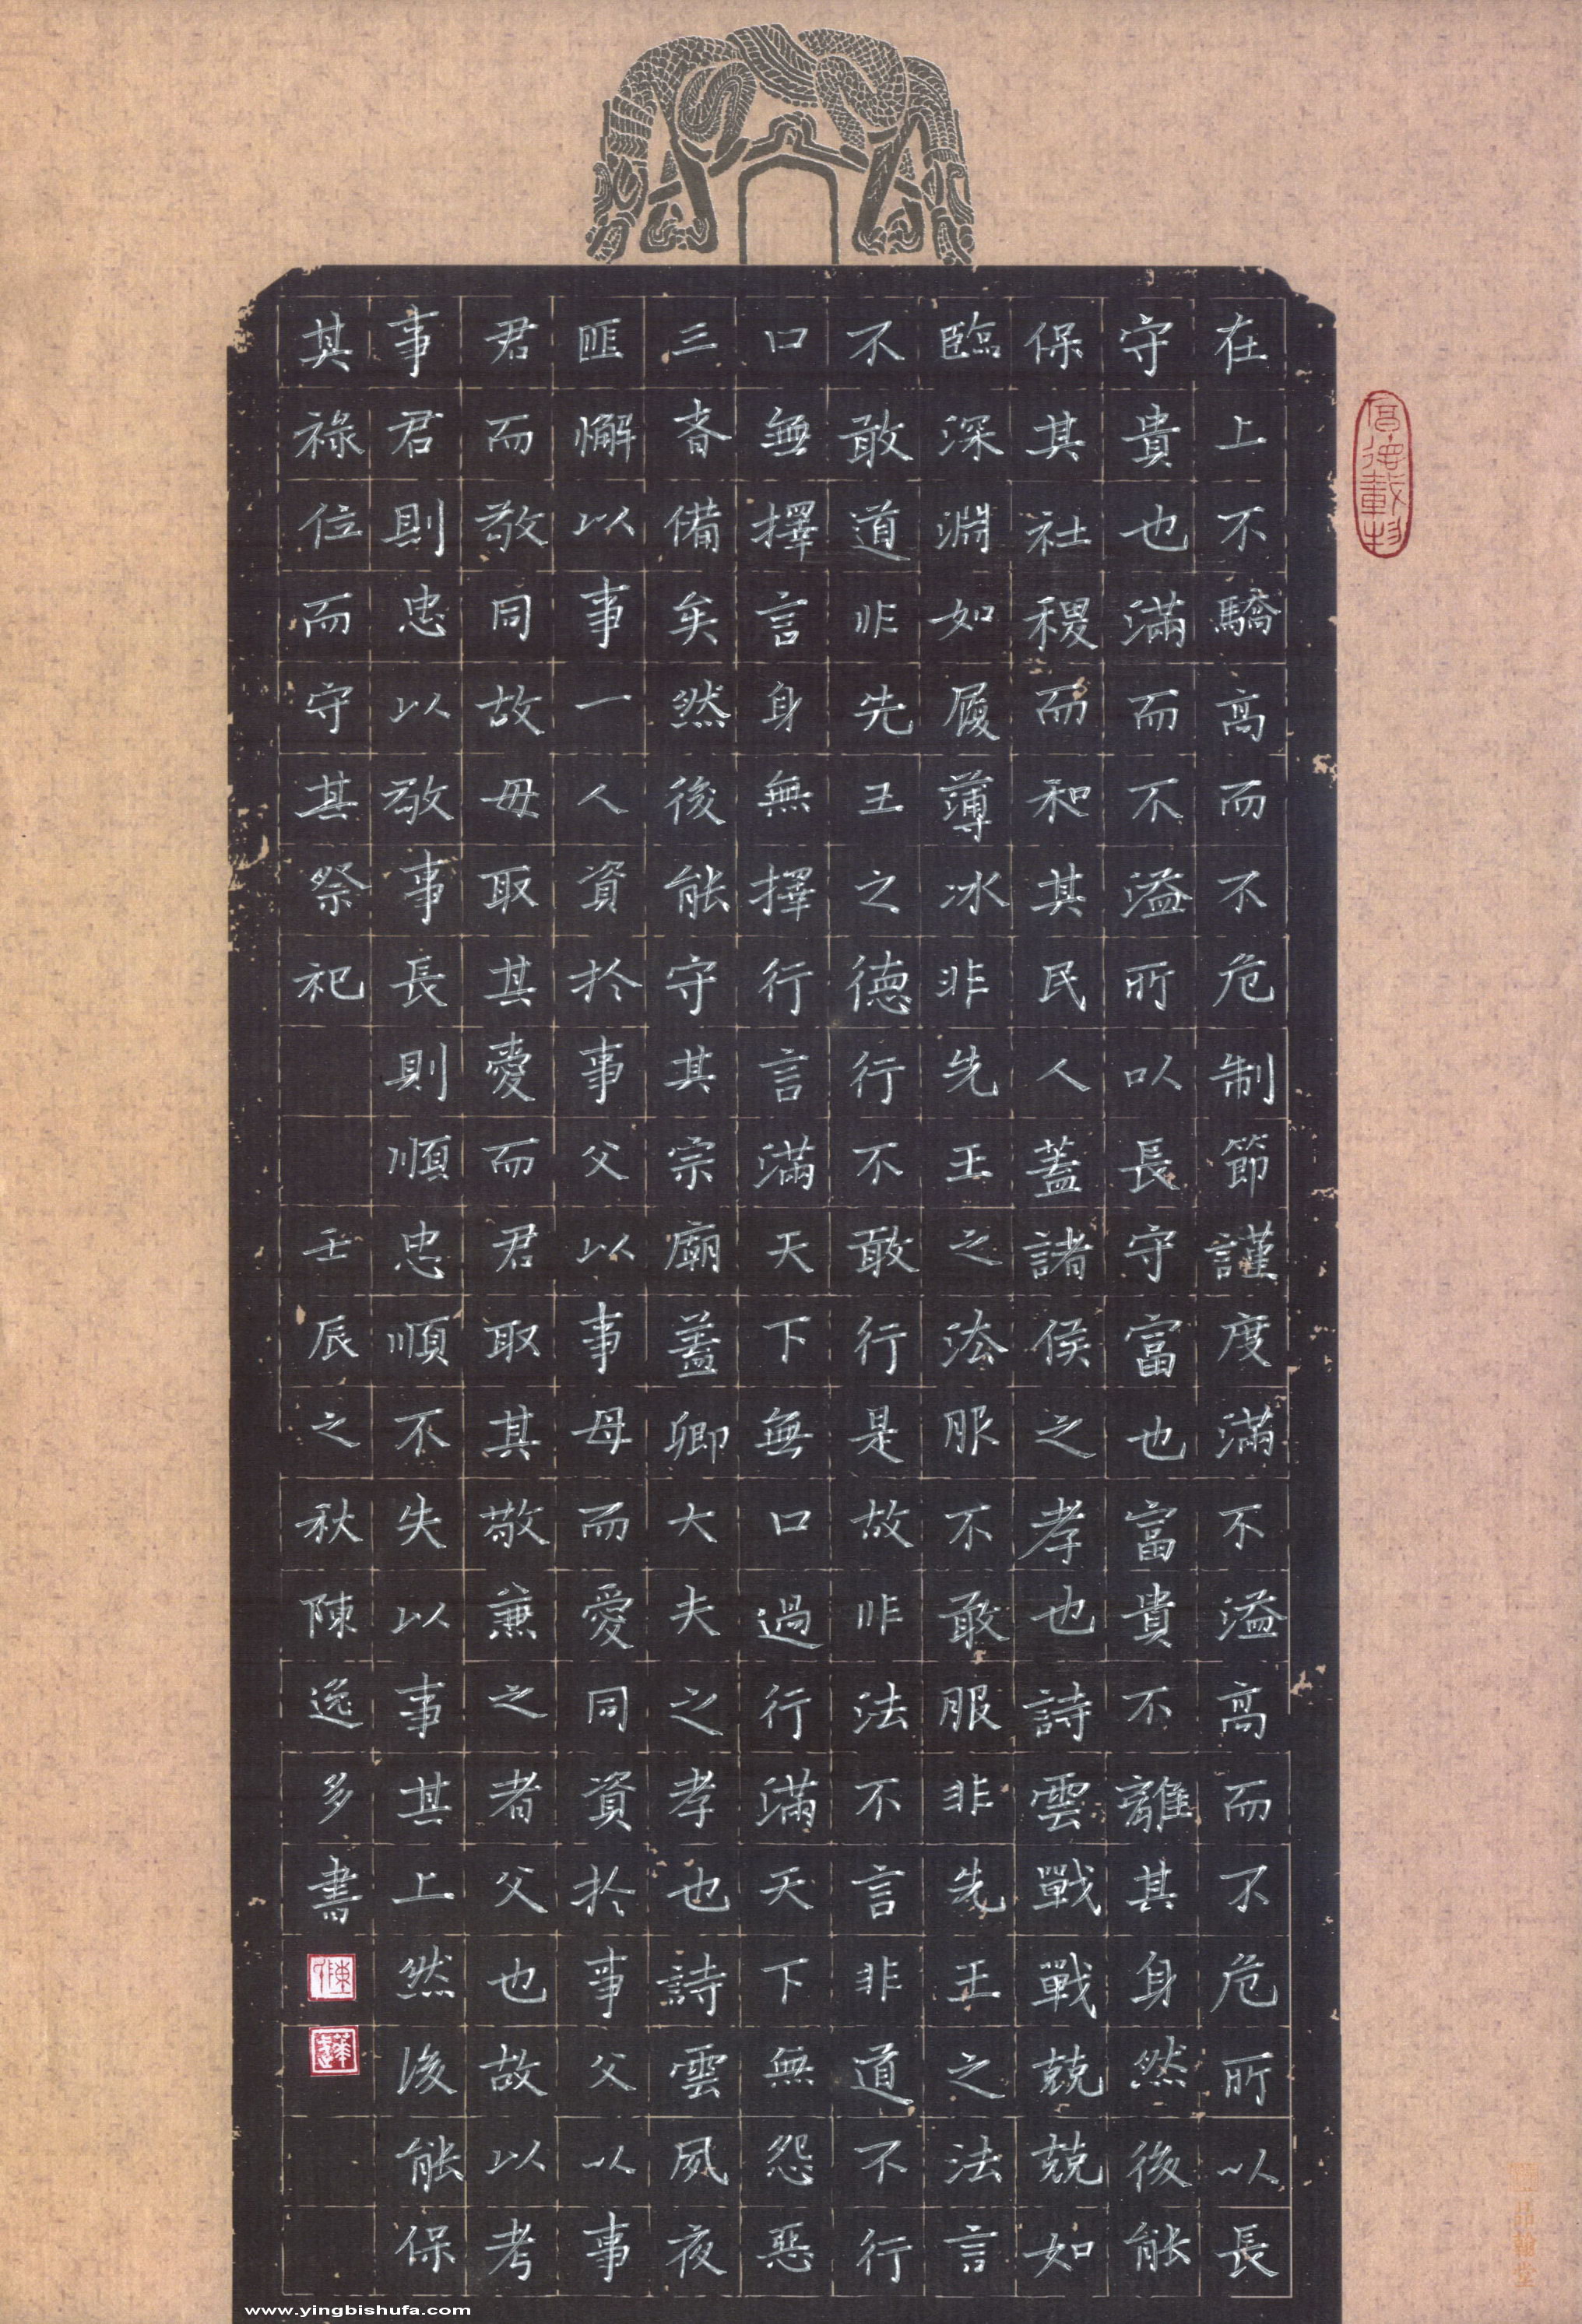 厚德載物
在上不驕高而不危制節謹度滿不溢高而不危所以長
守貴也滿而不溢所以長守富也富貴不離其身然後能
保其社稷而和其民人蓋諸侯之孝也詩雲戰戰兢兢如
臨深淵如履薄冰非先王之法服不敢服非先王之法言
不敢道非先王之德行不敢行是故非法不言非道不行
口無擇言身無擇行言滿天下無口過行滿天下無怨惡
三者備矣然後能守其宗廟蓋卿大夫之孝也詩雲夙夜
匪懈以事一人資於事父以事母而愛同資於事父以事
君而敬同故母取其愛而君取其敬兼之者父也故以考
事君則忠以敬事長則順忠順不失以事其上然後能保
其祿位而守其祭祀 壬辰之秋陳逸多書
www.yingbishufa.com